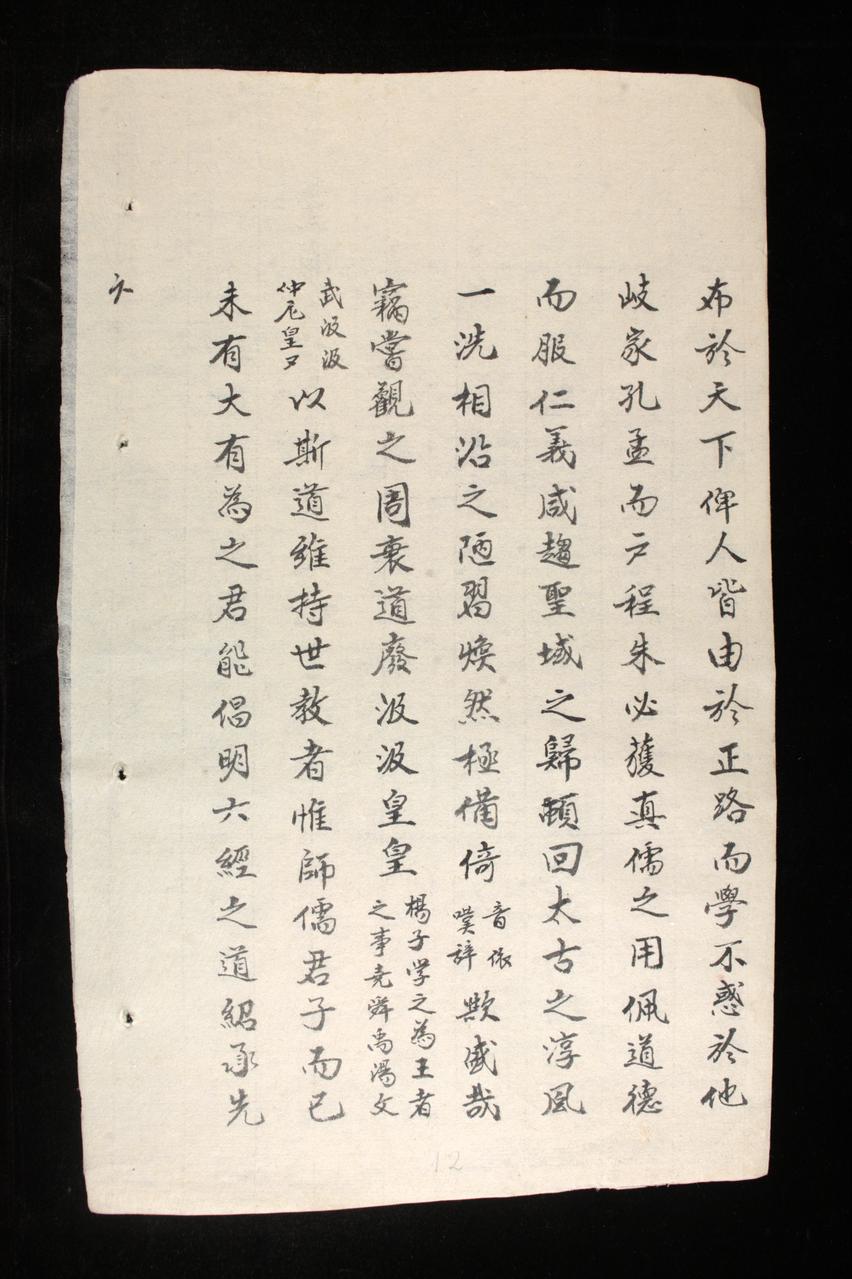 布於天下俾人皆由於正路而學不惑於他
岐家孔孟而户程朱必獲真儒之用佩道德
而服仁義咸趨聖域之歸頓回太古之淳風
一洗相沿之陋習煥然極備倚音依嘆辞歟盛哉
竊嘗觀之周衰道廢汲汲皇皇楊子学之為王者之事尭舜禹湯文
武汲汲仲尼皇又以斯道維持世教者惟師儒君子而已
未有大有為之君能倡明六經之道紹承先
六
12